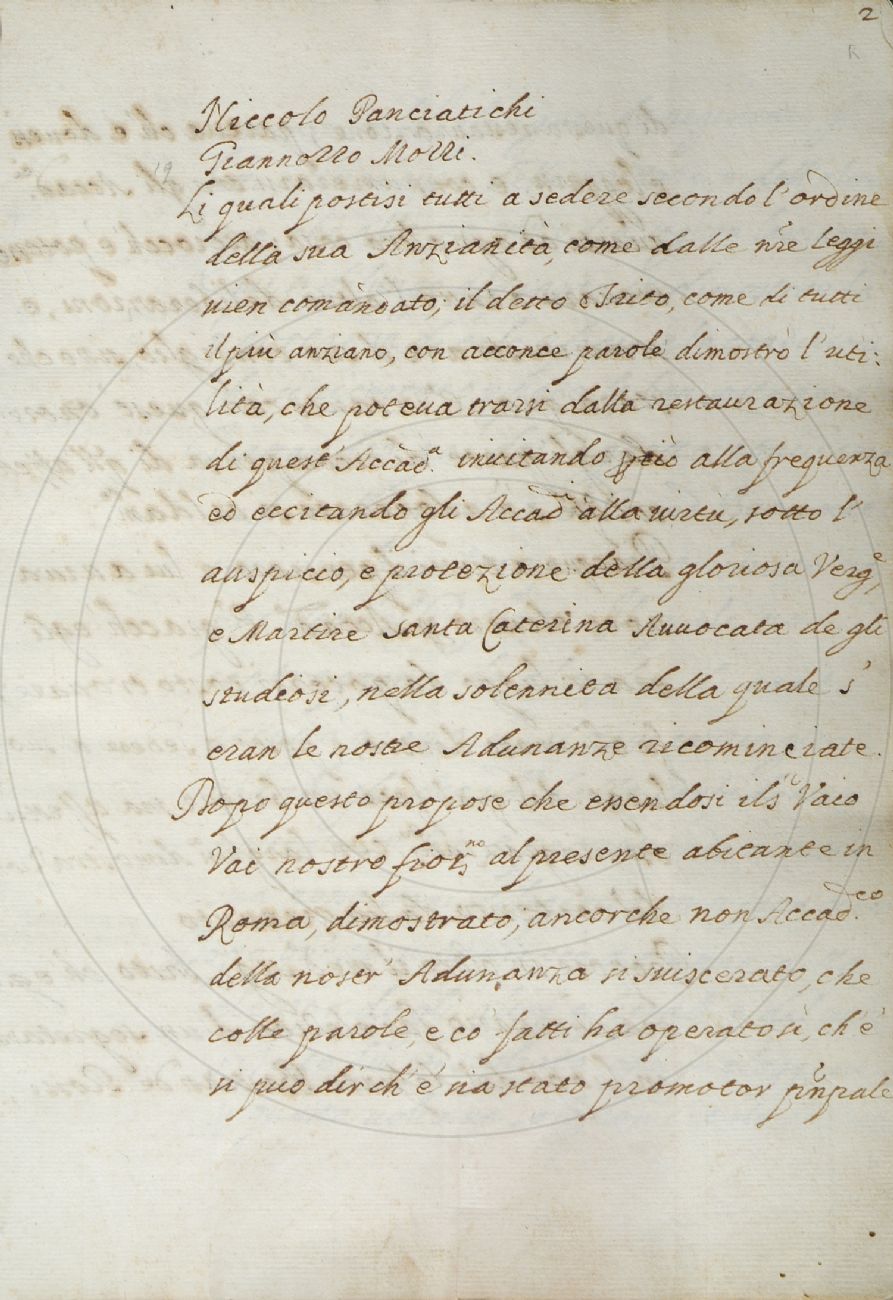 2
Niccolo Panciatichi
Giannozzo Mozzi.
Li quali postisi tutti a sedere secondo l'ordine
della sua Anzianità, come dalle nr̃e Leggi
vien comandato; il detto come di tutti
il più anziano, con acconce parole dimostrò l'uti:
lità, che poteva trarsi dalla restaurazione
di quest' Accad.ª invitando p ciò alla frequenza
ed eccitando gli Accad.ⁱ alla virtù, sotto l'
auspicio, e protezione della gloriosa Verg.ᵉ,
e Martire Santa Caterina Avvocata de gli
studiosi, nella solennita della quale s'
eran le nostre Adunanze ricominciate.
Dopo questo propose che essendosi il S.ʳ Vaio
Vai nostro fior.ⁿᵒ al presente abitante in
Roma, dimostrato, ancorche non Accad.ᶜᵒ
della nostr' Adunanza si sviscerato, che
colle parole, e co' fatti ha operato sì, ch'e'
si può dir ch' e' sia stato promotor pñpale